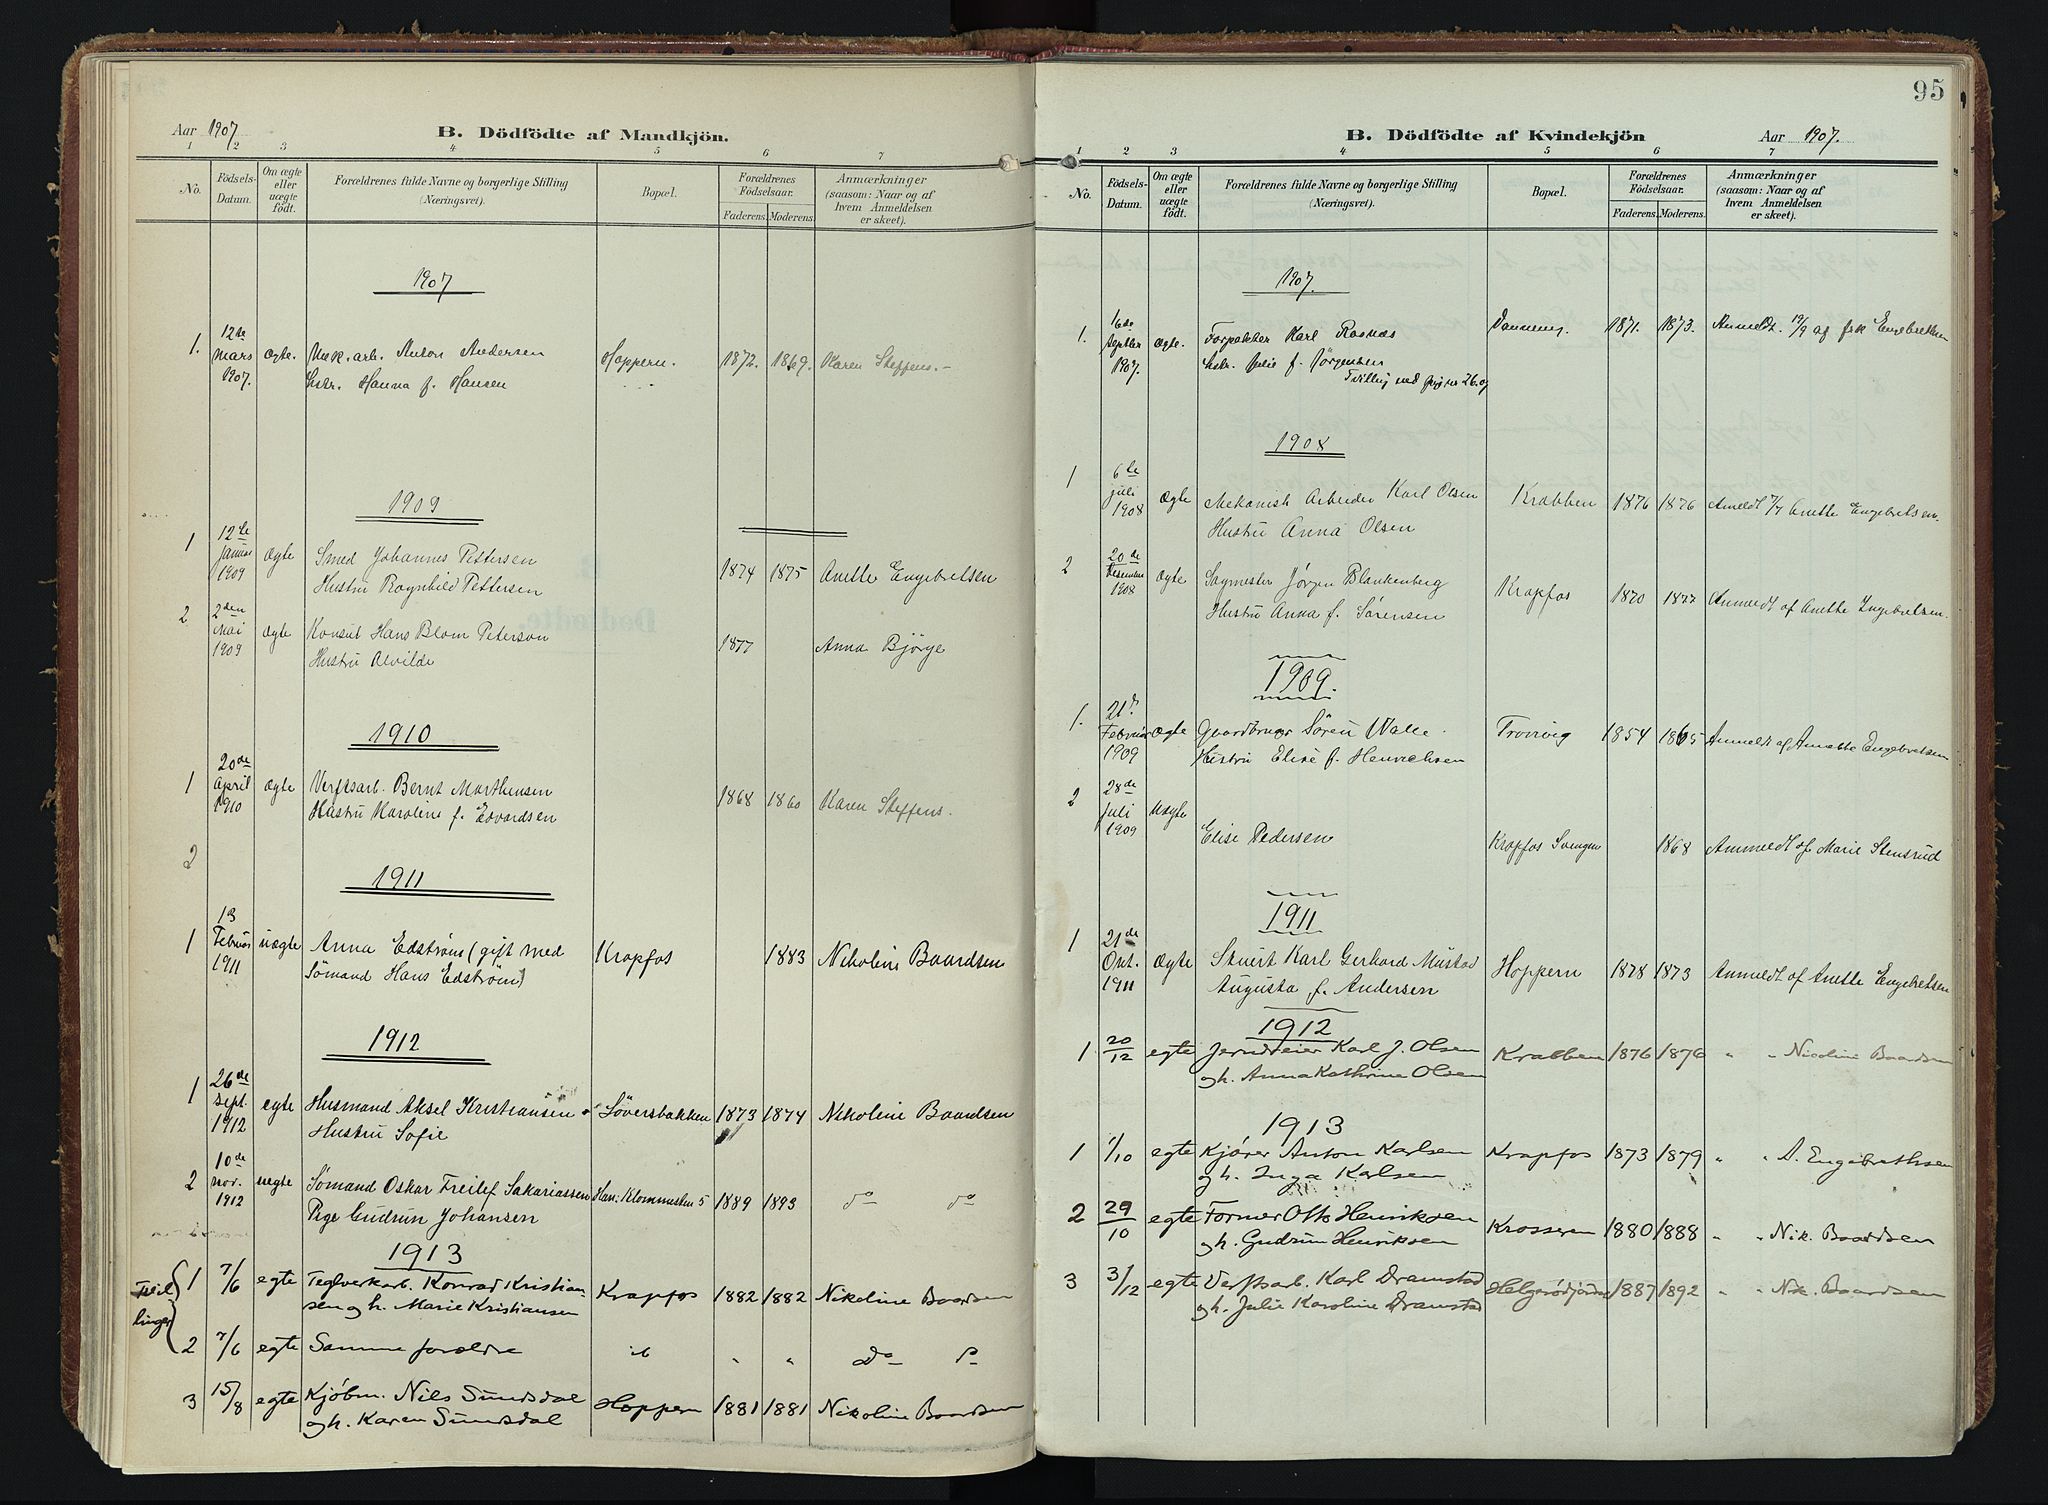 Aar 1907
B. Dödfödte af Mandkjön.
1 2 3 4 5 6 7
No.
Födsels-Datum.
Om ægte eller uægte födt.
Forældrenes fulde Navne og borgerlige Stilling (Næringsvei).
Bopæl.
Forældrenes Födselsaar.
Faderens. Moderens.
Anmærkninger (saasom: Naar og af hvem Anmeldelsen er skeet).
1907
1. 12te mars 1907. ægte. Mek. arb. Anton Andersen Hoppern. 1872. 1869. Karen Steffens.-
hstr. Hanna f. Hansen
1909
1 12te januar 1909 ægte Smed Johannes Pettersen 1874 1875 Anette Engebretsen
Hustru Ragnhild Pettersen
2 2den Mai 1909 ægte Konsul Hans Blom Peterson 1877 Anna Bjørge
Hustru Alvilde
1910
1 20de April 1910 ægte Verftsarb. Bernt Marthensen 1868 1860 Karen Steffens.
Hustru Karoline f. Edvardsen
2
1911
1 13 Februar 1911 uægte Anna Edstrøm (gift med Krapfos 1883 Nikoline Baardsen
Sømand Hans Edstrøm)
1912
1 26de sept. 1912 egte Husmand Aksel Kristiansen o Søversbakken 1873 1874 Nikoline Baardsen
Hustru Sofie
2 10de nov. 1912 uegte Sømand Oskar Freilef Sakariassen Han: Klommesten 5 1889 1893 do do
Pige Gudrun Johansen
1913
Tvil-linger
1 7/6 egte Teglverkarb. Konrad Kristian- Krapfos 1882 1882 Nikoline Baardsen
sen og h. Marie Kristiansen
2 7/6 egte Samme forældre ib " " Do Do
3 15/8 egte Kjøbm. Nils Sundsdal Hoppern 1881 1881 Nikoline Baardsen
og h. Karen Sundsdal
95
B. Dödfödte af Kvindekjön
Aar 1907.
1 2 3 4 5 6 7
No.
Födsels-Datum.
Om ægte eller uægte födt.
Forældrenes fulde Navne og borgerlige Stilling (Næringsvei).
Bopæl.
Forældrenes Födselsaar.
Faderens. Moderens.
Anmærkninger (saasom: Naar og af hvem Anmeldelsen er skeet).
1907.
1. 16de septbr 1907. ægte. Forpakter Karl Rosnæs 1871. 1873. Anmeldt. 19/9 af frk Engebretsen
hstr. Julie f. Jørgensen
Tvilling med
1908
1 6te juli 1908 ægte Mekanisk Arbeider Karl Olsen Krabben 1876 1876 Anmeldt 7/7 Anette Engebretsen.
Hustru Anna Olsen
2 20de Desember 1908 ægte Sagmester Jørgen Blankenberg Krapfos 1870 1877 Anmeldt af Anette Engebretsen.
Hustru Anna f. Sørensen
1909.
1. 21d Februar 1909 ægte Gaardbruger Søren Walle. Trovivig 1854 1865 Anmeldt af Anette Engebretsen
Hustru Elise f. Henrichsen
2 28de Juli 1909 Uægte
Elise Pedersen Krapfos Svingen 1868 Anmeldt af Marie Stensrud
1911
1 21de Okt. 1911 ægte Skuert Karl Gerhard Mustad Hoppern 1878 1873 Anmeldt af Anette Engebretsen
Augusta f. Andersen
1912
1 20/12 egte Jerndreier Karl J. Olsen Krabben 1876 1876 " " Nicoline Baardsen
og h. Anna Kathrine Olsen
1913
1 1/10 egte Kjører Anton Karlsen Krapfos 1873 1879 " " A. Engebrethsen
og h. Inga Kalsen
2 29/10 egte Former Otto Henriksen Krosseren 1880 1888 " " Nik. Baardsen
og h. Gudrun Henriksen
3 3/12 egte Verftsarb. Karl Dramstad Helgerødjordet 1887 1892 " " Nik. Baardsen
og h. Julie Karoline Dramstad